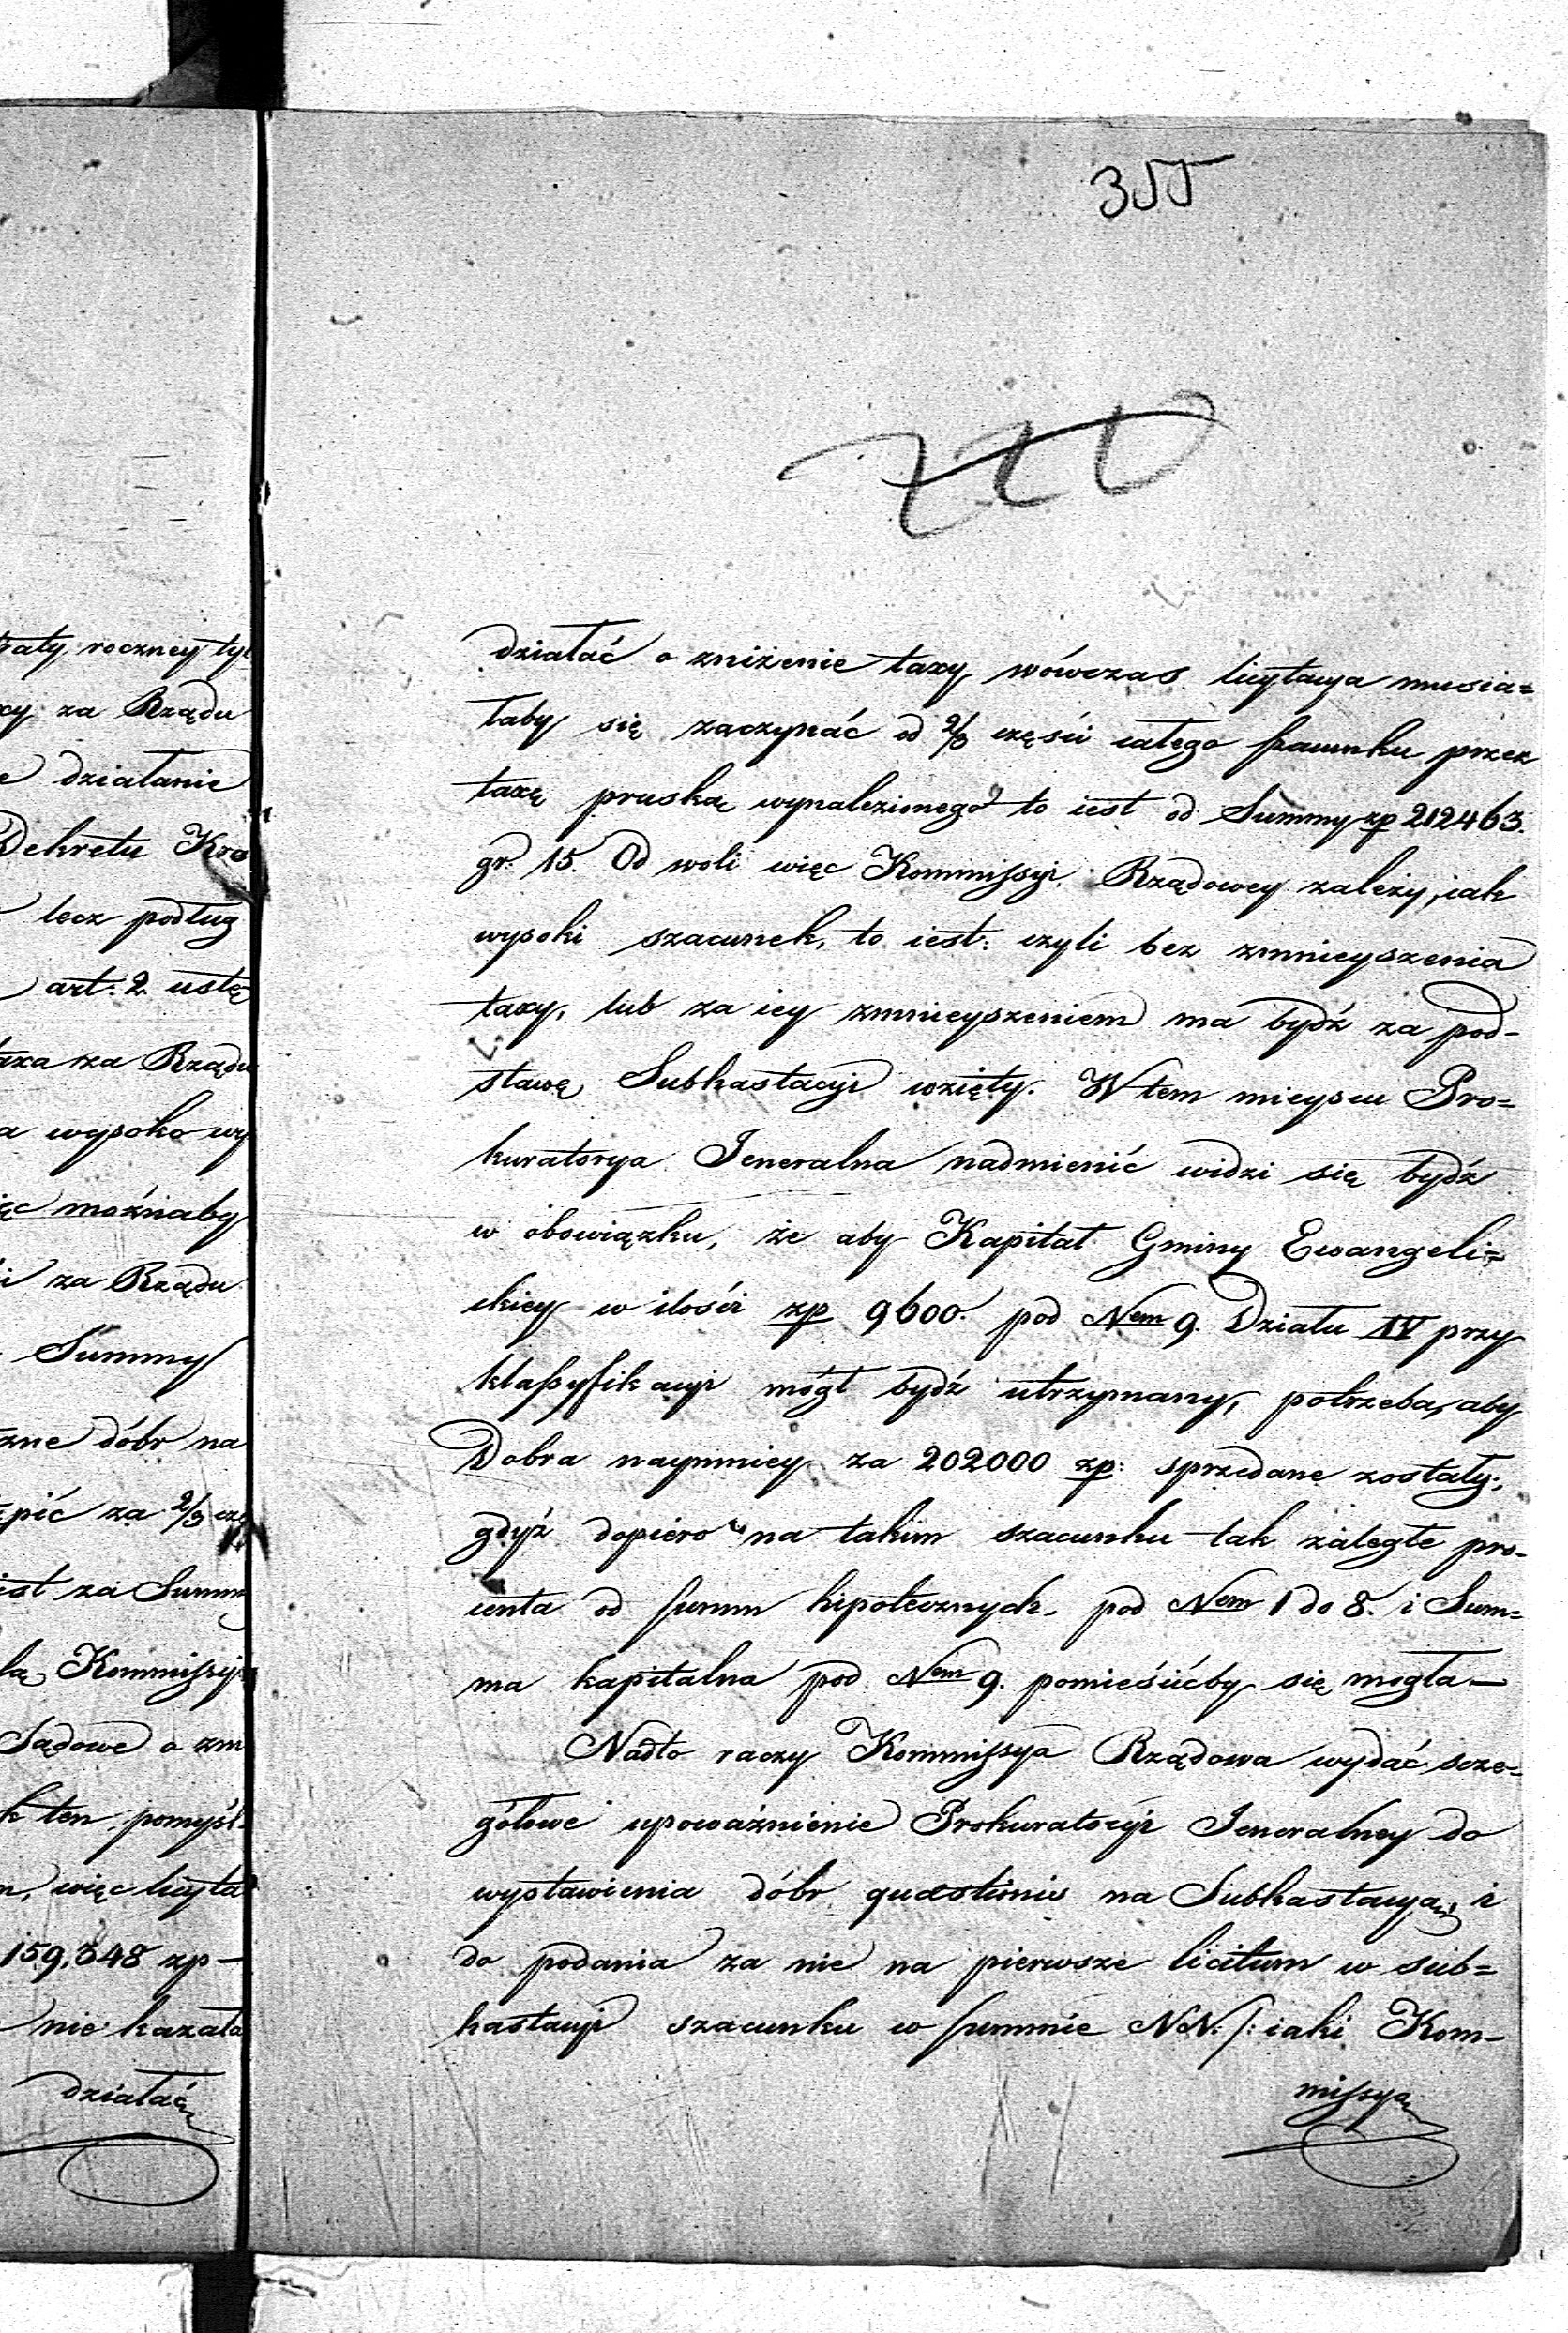 355
raty roczney ty
cy za Rządu
e działanie
Dekretu Kro
lecz podług
art. 2. ustę
taxa za Rządu
a wysoko wy
ięc możnaby
i za Rządu
Summy
zne dóbr na
pić za 2/3 czę
iest za Summ
ła Kommissyi
Sądowe o zm
k ten pomyśl
n, więc licyta
159,348 zp —
nie kazała
działać
działać o zniżenie taxy, wówczas licytacya musia=
łaby się zaczynać od 2/3 części całego szacunku przez
taxę pruską wynalezionego to iest od Summy zp 212463.
gr. 15. Od woli więc Kommissyi Rządowey zależy, iak
wysoki szacunek, to iest: czyli bez zmnieyszenia
taxy, lub za iey zmnieyszeniem ma bydź za pod-
stawę Subhastacyi wzięty. W tem mieyscu Pro=
kuratorya Jeneralna nadmienić widzi się bydź
w obowiązku, że aby Kapitał Gminy Ewangeli=
ckiey w ilości zp 9600. pod Nem 9. Działu IV przy
klassyfikacyi mógł bydź utrzymany, potrzeba, aby
Dobra naymniey za 202000 zp: sprzedane zostały,
gdyż dopiero na takim szacunku tak zaległe pro-
centa od summ hipotecznych pod Nem 1 do 8. i Sum=
ma kapitalna pod Nem 9. pomieścićby się mogła —
Nadto raczy Kommissya Rządowa wydać scze-
gółowe upoważnienie Prokuratoryi Jeneralney do
wystawienia dóbr quaestionis na Subhastacyą, i
do podania za nie na pierwsze licitum w sub=
hastacyi szacunku w summie NN. /: iaki Kom-
missya